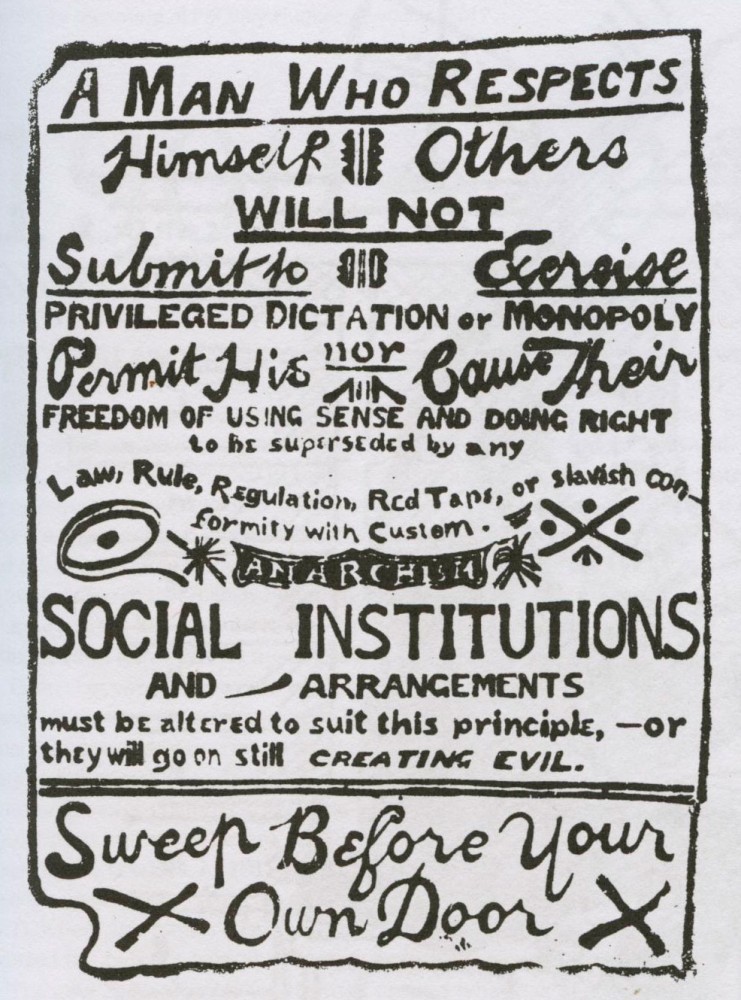 A MAN WHO RESPECTS
Himself Others
WILL NOT
Submit to Exercise
PRIVILEGED DICTATION or MONOPOLY
Permit His nor Cause Their
FREEDOM OF USING SENSE AND DOING RIGHT
to be superseded by any
Law, Rule, Regulation, Red Tape, or slavish con-
formity with Custom.
ANARCHISM
SOCIAL INSTITUTIONS
AND ARRANGEMENTS
must be altered to suit this principle, —or
they will go on still CREATING EVIL.
Sweep Before Your
Own Door